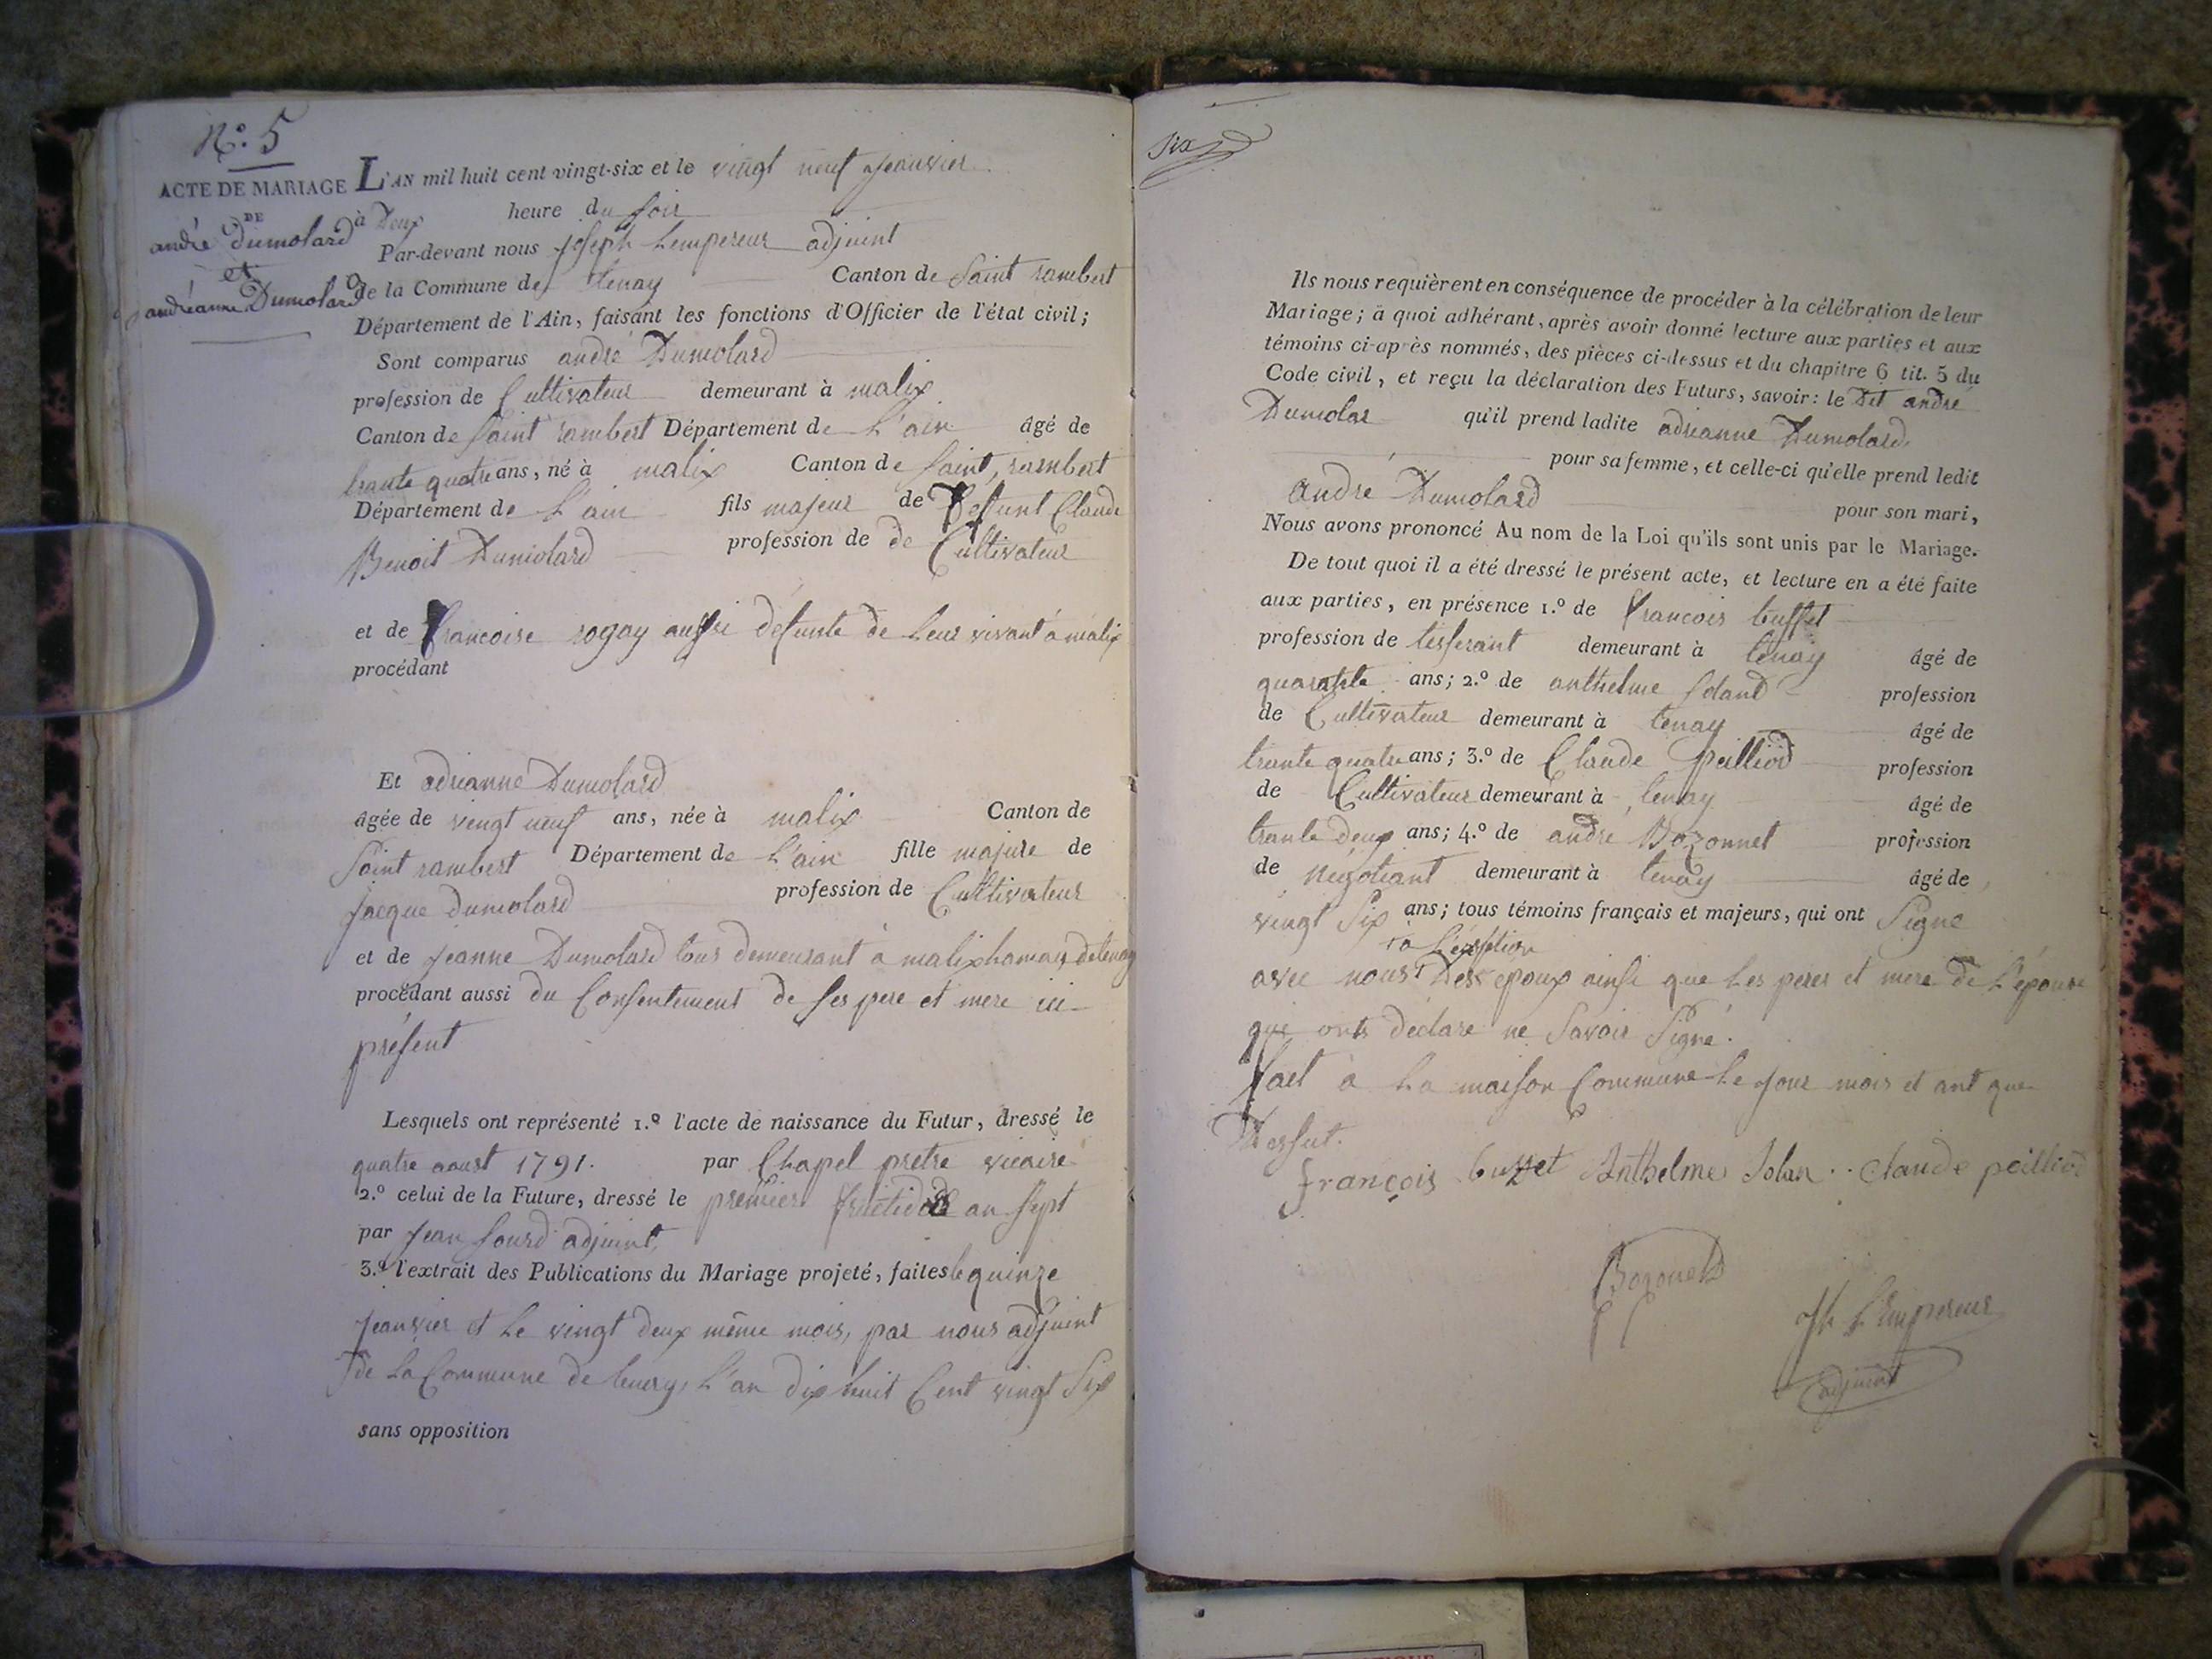 N.o 5
ACTE DE MARIAGE
DE
andré Dumolard
et
andréanne Dumolard
L'AN mil huit cent vingt-six et le vingt neuf jeanvier
à Deux heure du soir
Par-devant nous joseph Lempereur adjuint
de la Commune de tenay Canton de Saint rambert
Département de l'Ain, faisant les fonctions d'Officier de l'état civil;
Sont comparus andré Dumolard
profession de Cultivateur demeurant à malix
Canton de Saint rambert Département de L'ain âgé de
trante quatre ans, né à malix Canton de Saint, rambert
Département de L'ain fils majeur de Deffunt Claude
Benoit Dumolard profession de de Cultivateur
et de francoise rogay aussi défunte de Leur vivant à malix
procédant
Et adrianne Dumolard
âgée de vengt neuf ans, née à malix Canton de
Saint rambert Département de L'ain fille majure de
jacque dumolard profession de Cultivateur
et de jeanne Dumolard tous demeurant à malix hamau de tenay
procédant aussi du Consentement de ses pere et mere ici
présent
Lesquels ont représenté 1.o l'acte de naissance du Futur, dressé le
quatre aoust 1791. par Chapel pretre vicaire
2.o celui de la Future, dressé le premier fructidor an sept
par jean sourd adjuint
3.o l'extrait des Publications du Mariage projeté, faites le quinze
jeanvier et le vingt deux même mois, par nous adjuint
de La Commune de tenay, L'an dix huit Cent vingt Six
sans opposition
six
Ils nous requièrent en conséquence de procéder à la célébration de leur
Mariage; à quoi adhérant, après avoir donné lecture aux parties et aux
témoins ci-après nommés, des pièces ci-dessus et du chapitre 6 tit. 5 du
Code civil, et reçu la déclaration des Futurs, savoir: le Dit andré
Dumolar qu'il prend ladite adrianne Dumolard
pour sa femme, et celle-ci qu'elle prend ledit
andré Dumolard pour son mari,
Nous avons prononcé Au nom de la Loi qu'ils sont unis par le Mariage.
De tout quoi il a été dressé le présent acte, et lecture en a été faite
aux parties, en présence 1.o de francois buffet
profession de tesserant demeurant à tenay âgé de
quarante ans; 2.o de anthelme Soland profession
de Cultivateur demeurant à tenay âgé de
trante quatre ans; 3.o de Claude peilliod profession
de Cultivateur demeurant à tenay âgé de
trante deux ans; 4.o de andré Bozonnet profession
de négotiant demeurant à tenay âgé de
vingt Six ans; tous témoins français et majeurs, qui ont Signé
à L'exseption
avec nous Des epoux ainsi que Les peres et mere de L'épouse
que onts déclaré ne Savoir Signé.
fait à La maison Commune Le jour mois et ant que
Dessut.
françois buffet Anthelme Solan Claude peilliod
Bozonet
Jh L'Empereur
adjuint